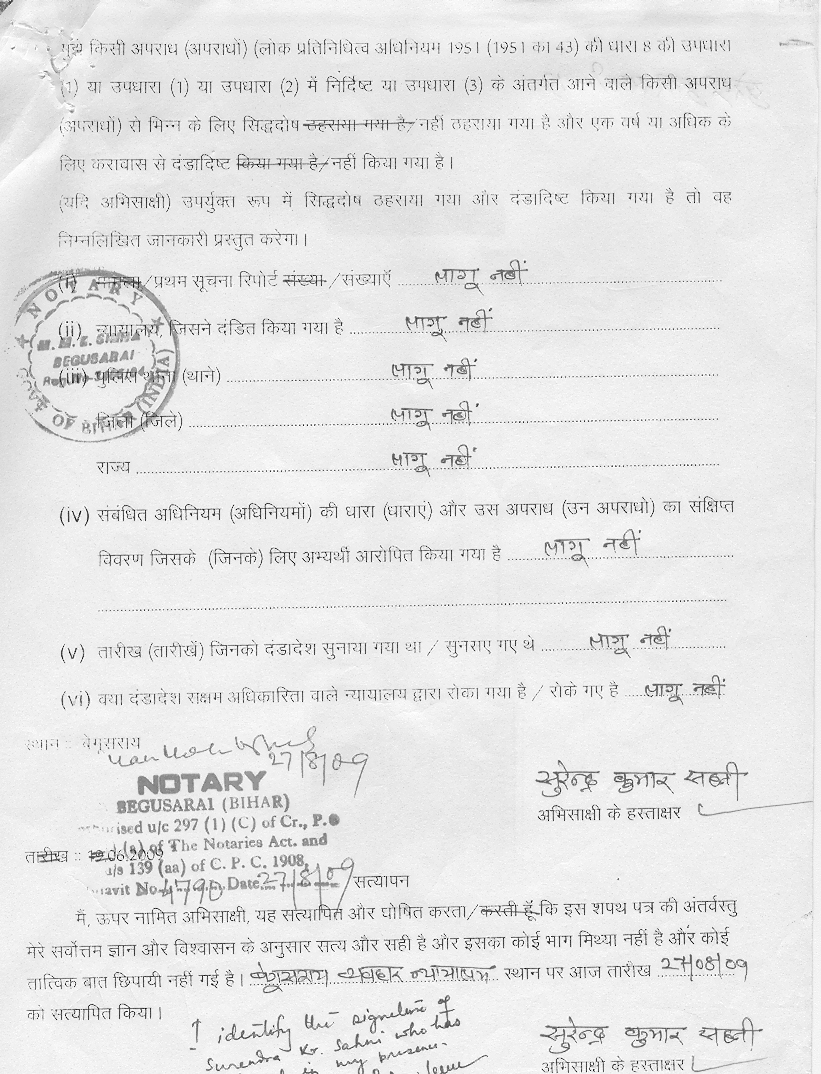 मुझे किसी अपराध (अपराधों) (लोक प्रतिनिधित्व अधिनियम 1951 (1951 का 43) की धारा 8 की उपधारा
(1) या उपधारा (1) या उपधारा (2) में निर्दिष्ट या उपधारा (3) के अंतर्गत आने वाले किसी अपराध
(अपराधों) से भिन्न के लिए सिद्धदोष ठहराया गया है/नहीं ठहराया गया है और एक वर्ष या अधिक के
लिए करावास से दंडादिष्ट किया गया है/नहीं किया गया है।
(यदि अभिसाक्षी) उपर्युक्त रूप में सिद्धदोष ठहराया गया और दंडादिष्ट किया गया है तो वह
निम्नलिखित जानकारी प्रस्तुत करेगा।
(i) मामला/प्रथम सूचना रिपोर्ट संख्या /संख्याएँ लागू नहीं
(ii) न्यायालय, जिसने दंडित किया गया है लागू नहीं
(iii) पुलिस थाना (थाने) लागू नहीं
जिला (जिले) लागू नहीं
राज्य लागू नहीं
NOTARY
BEGUSARAI
GOVT. OF BIHAR (INDIA)
(iv) संबंधित अधिनियम (अधिनियमों) की धारा (धाराएं) और उस अपराध (उन अपराधो) का संक्षिप्त
विवरण जिसके (जिनके) लिए अभ्यर्थी आरोपित किया गया है लागू नहीं
(v) तारीख (तारीखें) जिनको दंडादेश सुनाया गया था / सुनसए गए थे लागू नहीं
(vi) क्या दंडादेश सक्षम अधिकारिता वाले न्यायालय द्वारा रोका गया है / रोके गए है लागू नहीं
स्थान :: बेगुसराय
27/8/09
NOTARY
BEGUSARAI (BIHAR)
u/c 297 (1) (C) of Cr., P.
of The Notaries Act. and
u/s 139 (aa) of C. P. C. 1908,
No 4790 Date 27/8/09
सुरेन्द्र कुमार सहनी
अभिसाक्षी के हस्ताक्षर
तारीख :: .06.2009
सत्यापन
मैं, ऊपर नामित अभिसाक्षी, यह सत्यापित और घोषित करता/करती हूँ कि इस शपथ पत्र की अंतर्वस्तु
मेरे सर्वोत्तम ज्ञान और विश्वासन के अनुसार सत्य और सही है और इसका कोई भाग मिथ्या नहीं है और कोई
तात्विक बात छिपायी नहीं गई है। बेगूसराय व्यवहार न्यायालय स्थान पर आज तारीख 27/08/09
को सत्यापित किया।
I identify the signature of
Surendra Kr. Sahni who has
in my presence.
सुरेन्द्र कुमार सहनी
अभिसाक्षी के हस्ताक्षर